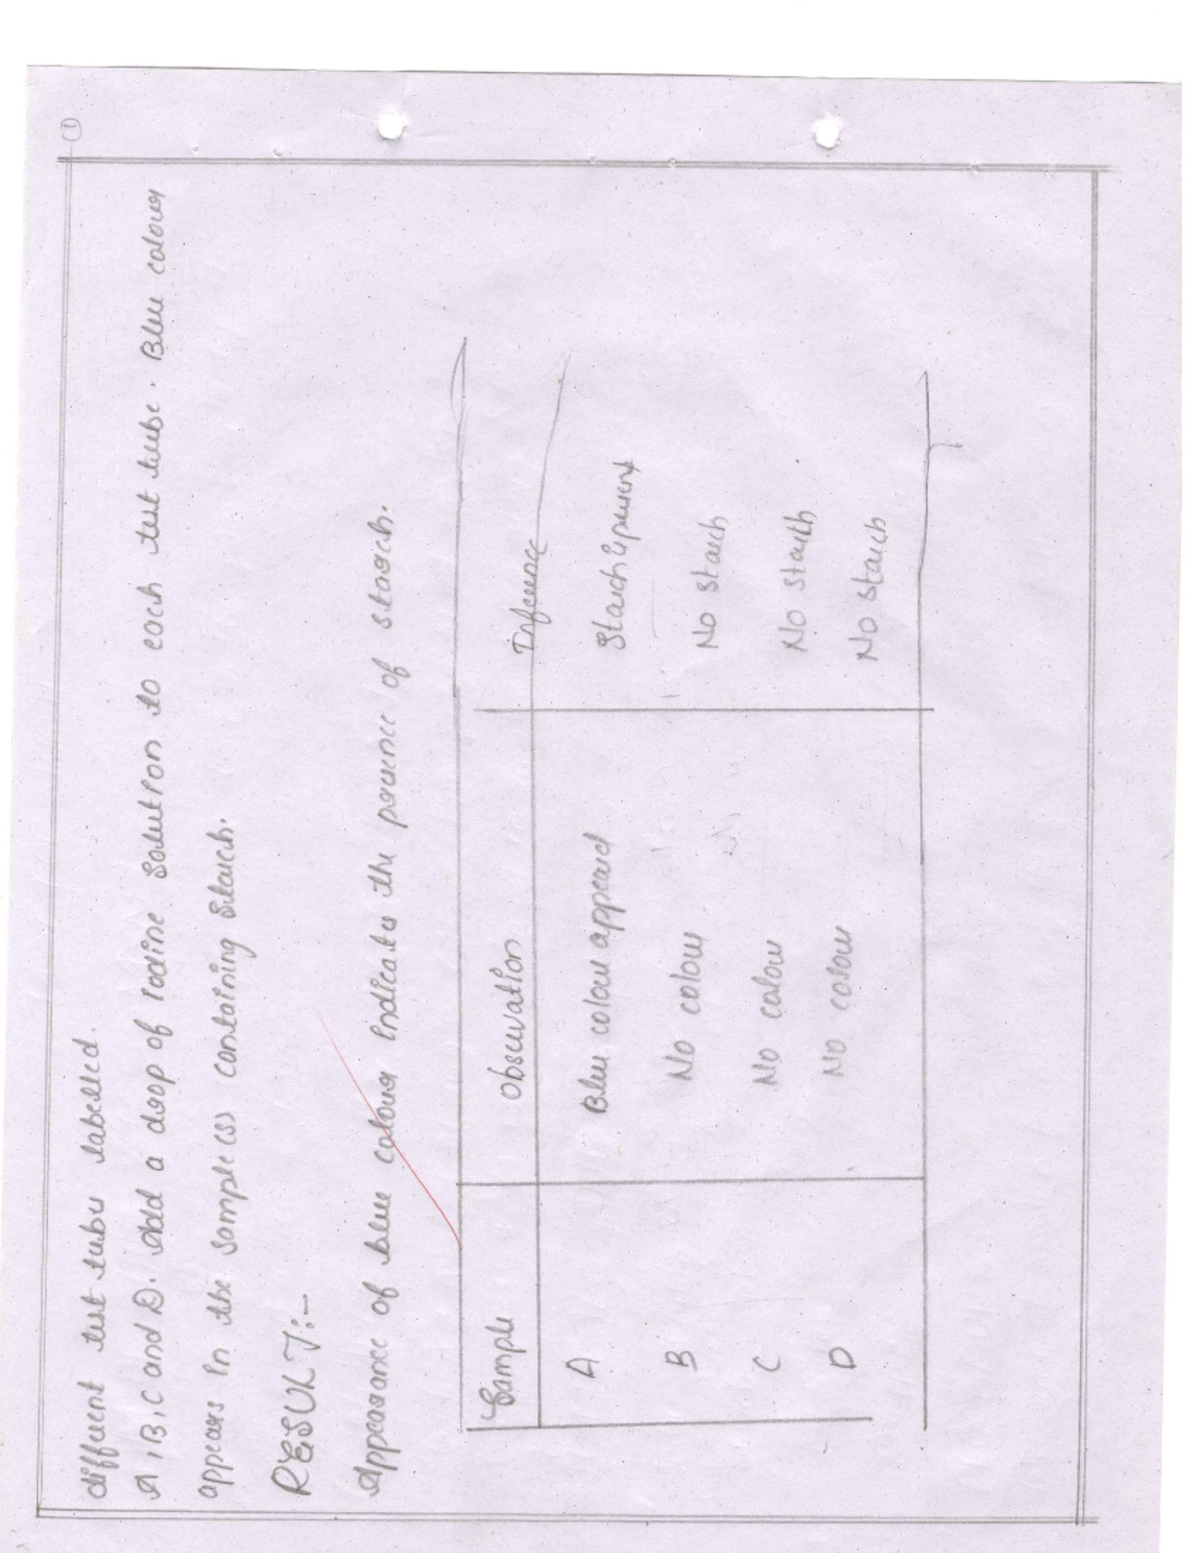 1
different test tubes labelled.
A, B, C and D. Add a drop of iodine solution to each test tube. Blue colour
appears in the sample(s) containing starch.
RESULT:-
Appearance of blue colour indicates the presence of starch.
Sample Observation Inference
A Blue colour appeared Starch is present
B No colour No starch
C No colour No starch
D No colour No starch